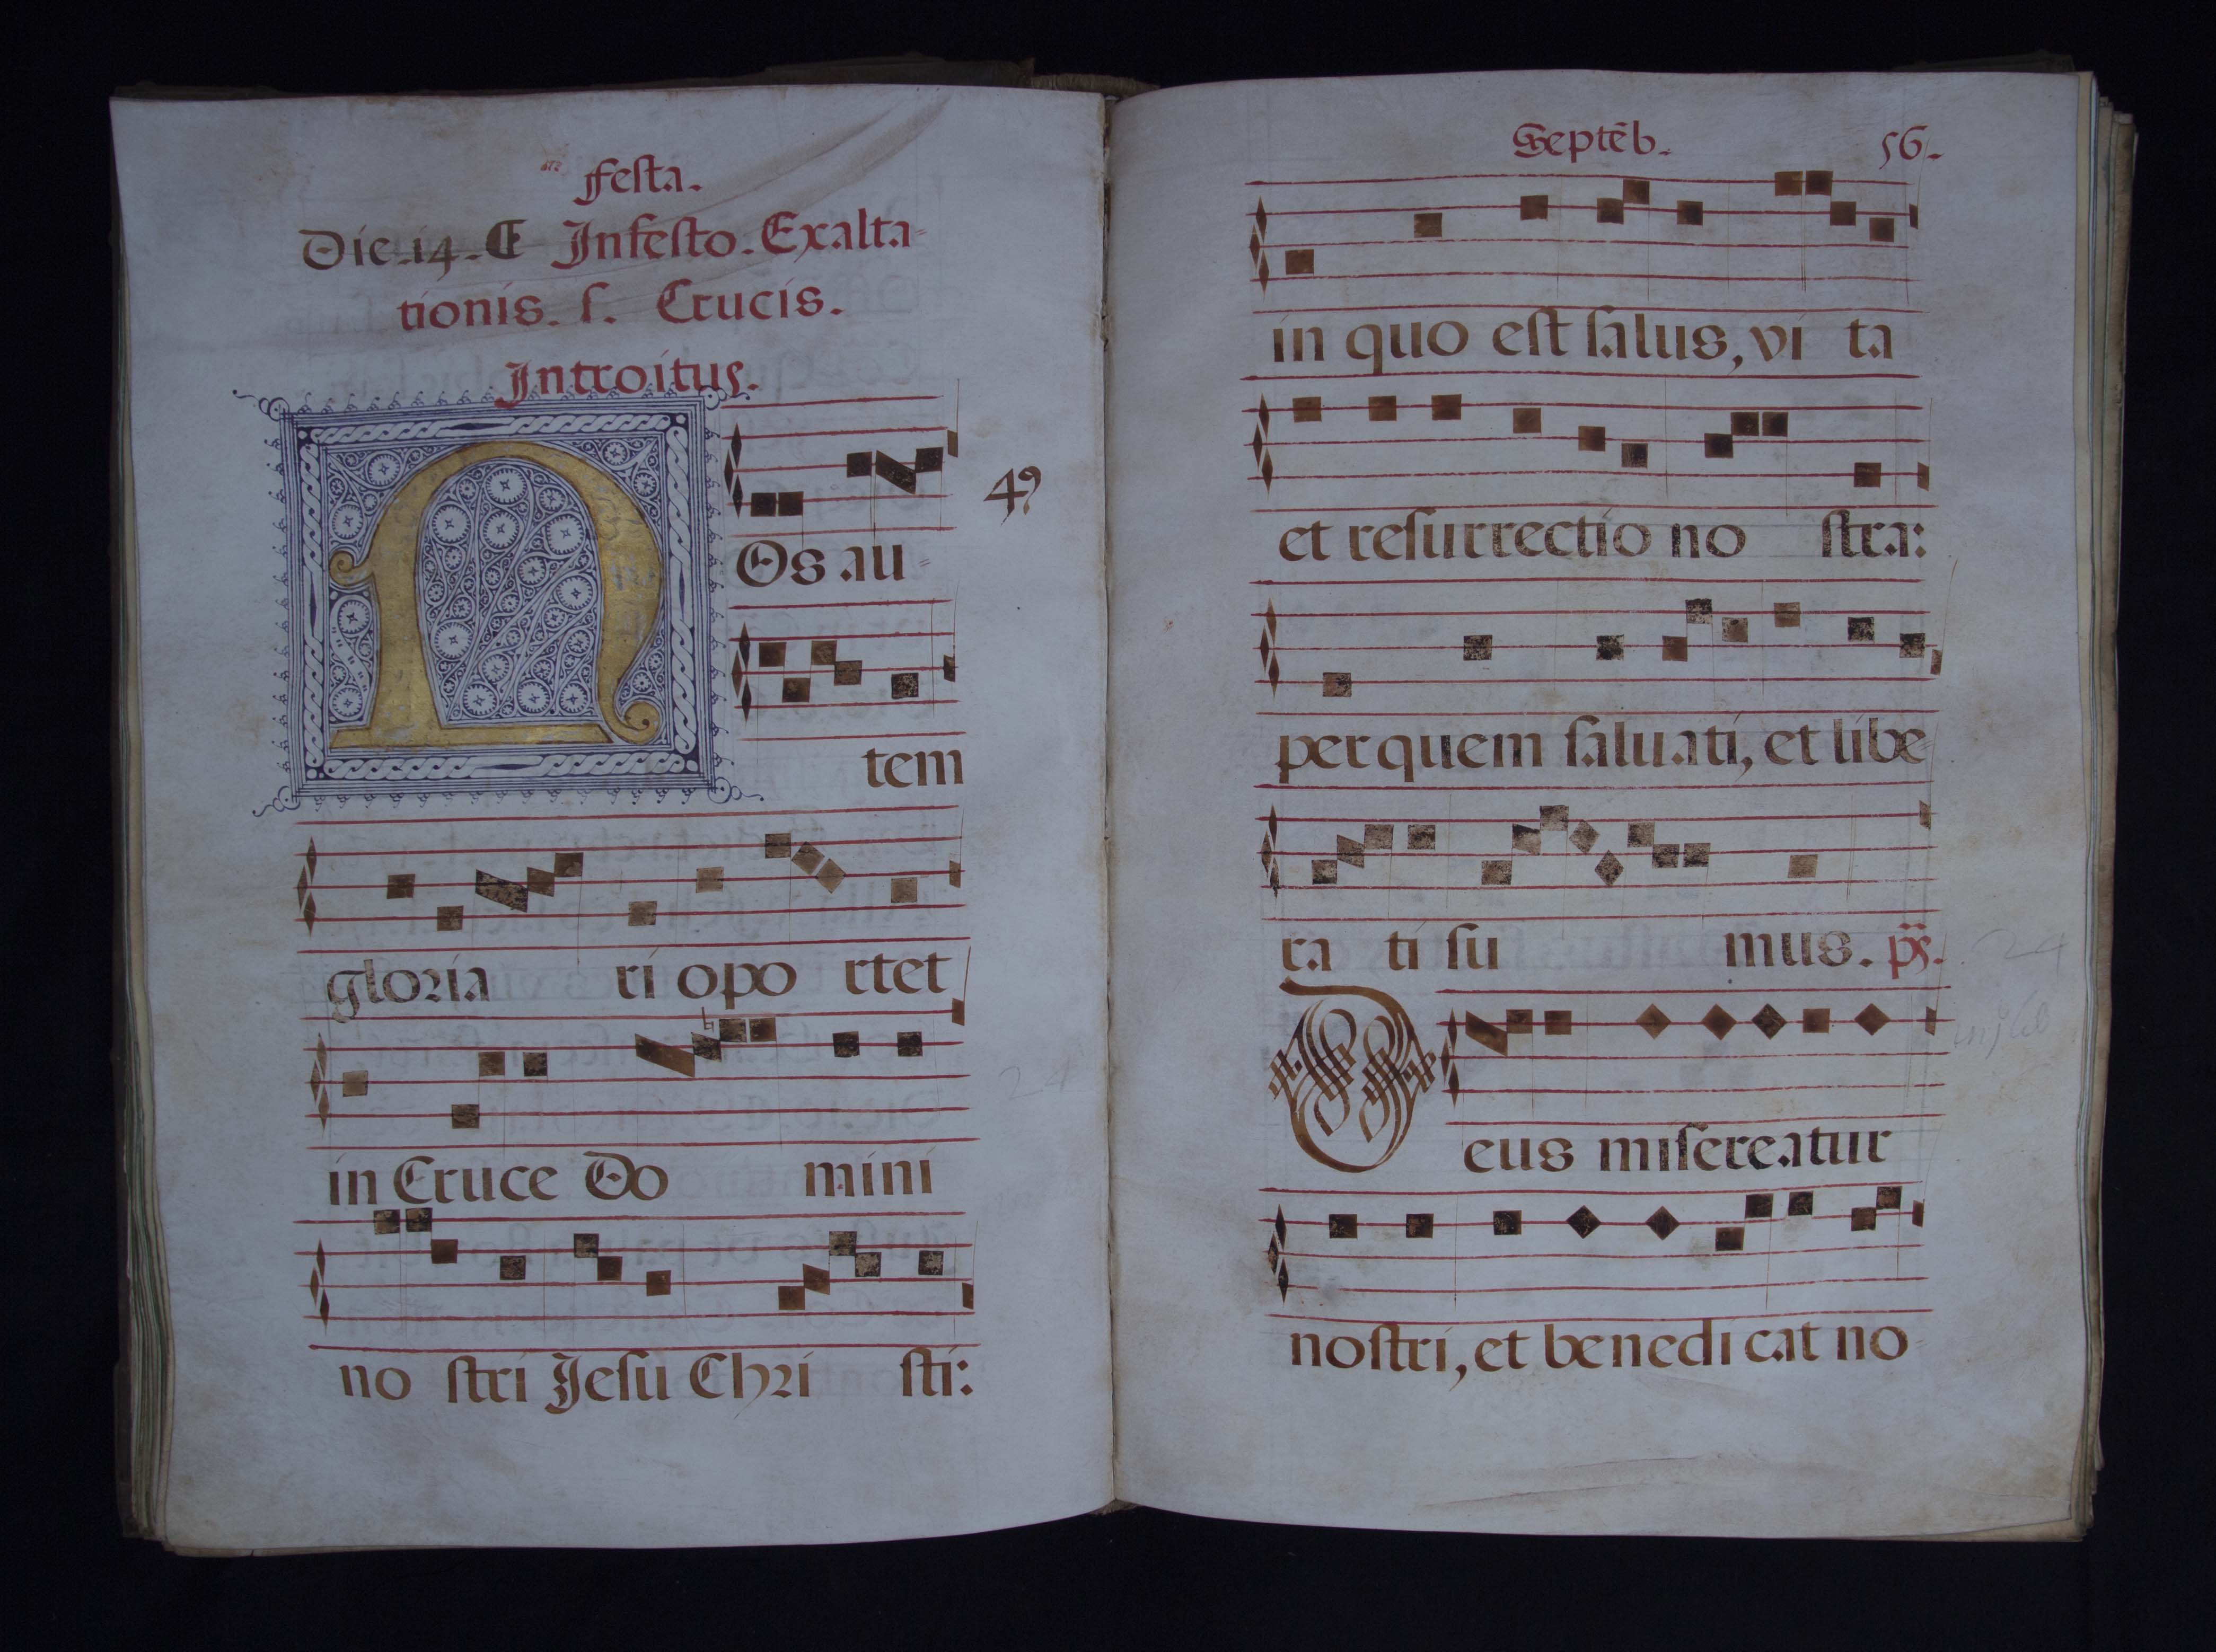 Festa.
Die. 14. In festo. Exalta-
tionis. s. Crucis.
Introitus.
NOs au-
49
tem
gloria ri opo rtet
in Cruce Do mini
no stri Jesu Chri sti:
Septẽb. 56.
in quo est salus, vi ta
et resurrectio no stra:
per quem saluati, et libe-
ra ti su mus. ps.
Deus misereatur
nostri, et benedicat no-
24
24